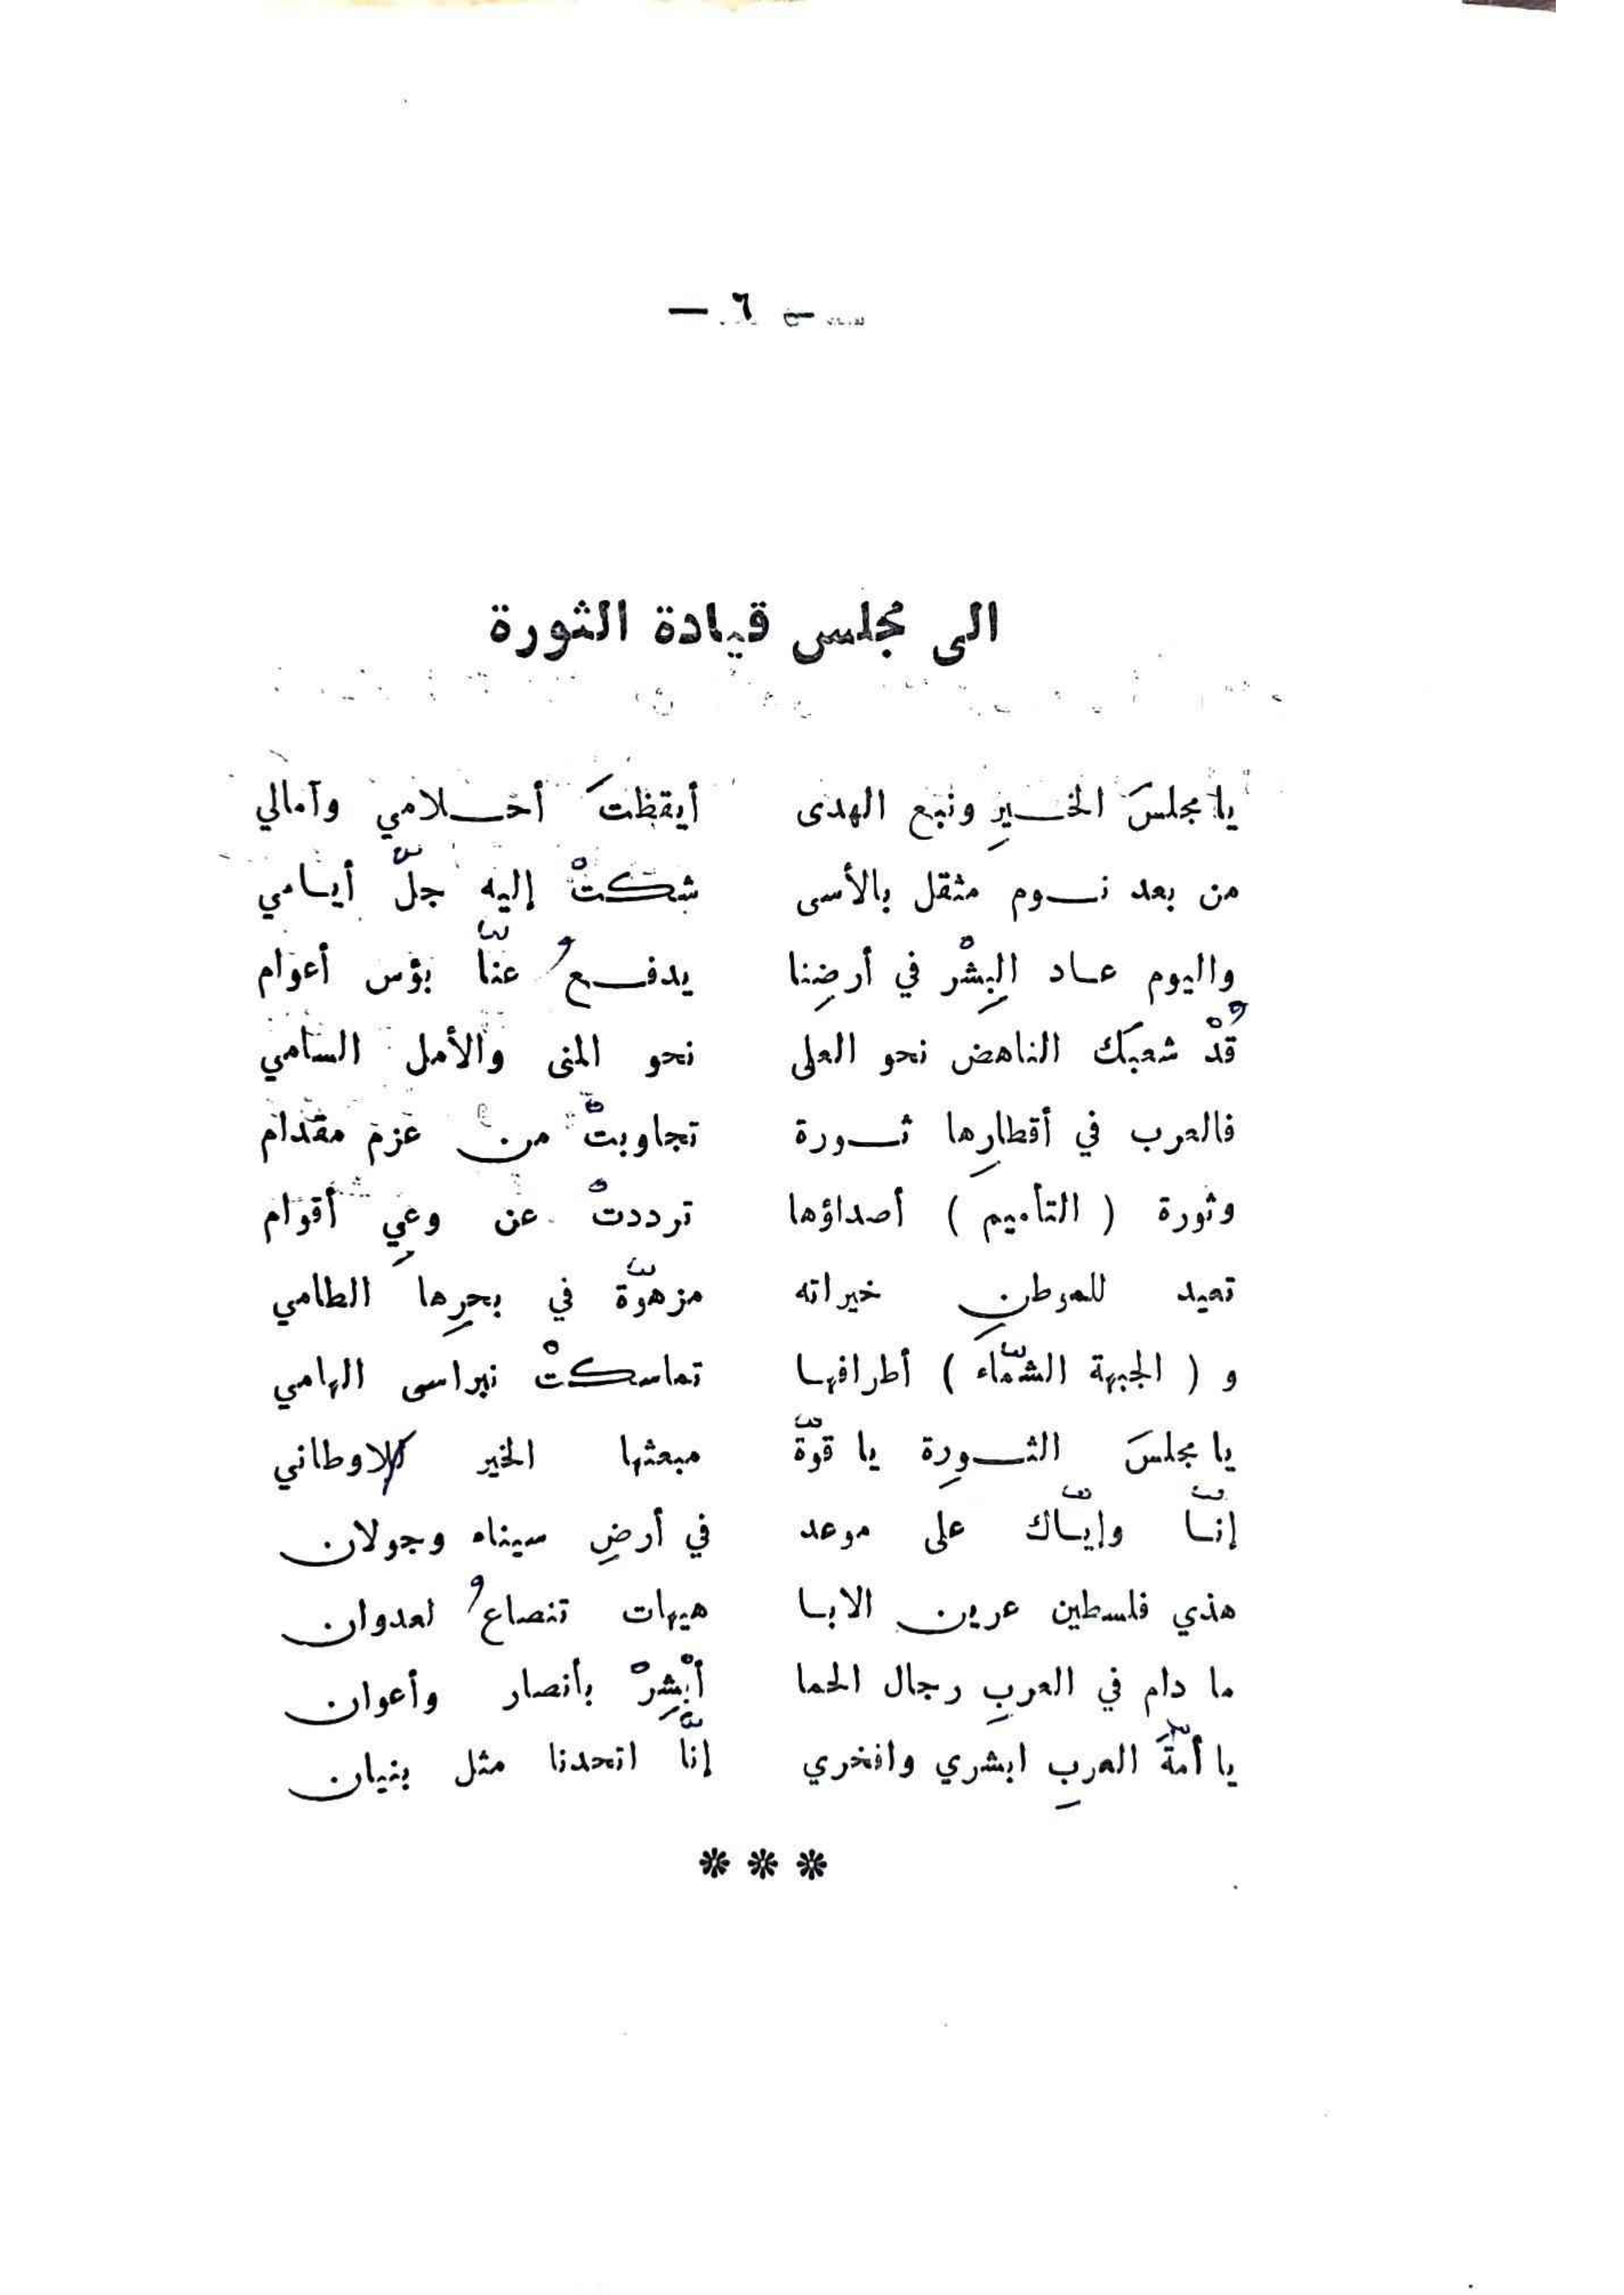 — ٦ —
الى مجلس قيادة الثورة
يا مجلسَ الخيرِ ونبع الهدى أيقظتَ أحلامي وآمالي
من بعد نوم مثقل بالأسى شكتْ إليه جلّ أيامي
واليوم عاد البِشْر في أرضِنا يدفعُ عنّا بؤس أعوام
قُدْ شعبَك الناهض نحو العلى نحو المنى والأمل السامي
فالعرب في أقطارِها ثورة تجاوبتْ من عزم مقدام
وثورة ( التأميم ) أصداؤها ترددتْ عن وعيِ أقوام
تعيد للموطنِ خيراته مزهوّة في بحرِها الطامي
و ( الجبهة الشمّاء ) أطرافها تماسكتْ نبراسى الهامي
يا مجلسَ الثورِة يا قوّة مبعثها الخير للاوطاني
إنّا وإيّاك على موعد في أرضِ سيناه وجولان
هذي فلسطين عرين الابا هيهات تنصاعُ لعدوان
ما دام في العربِ رجال الحما أبْشِرْ بأنصار وأعوان
يا أمّةَ العربِ ابشري وافخري إنّا اتحدنا مثل بنيان
***